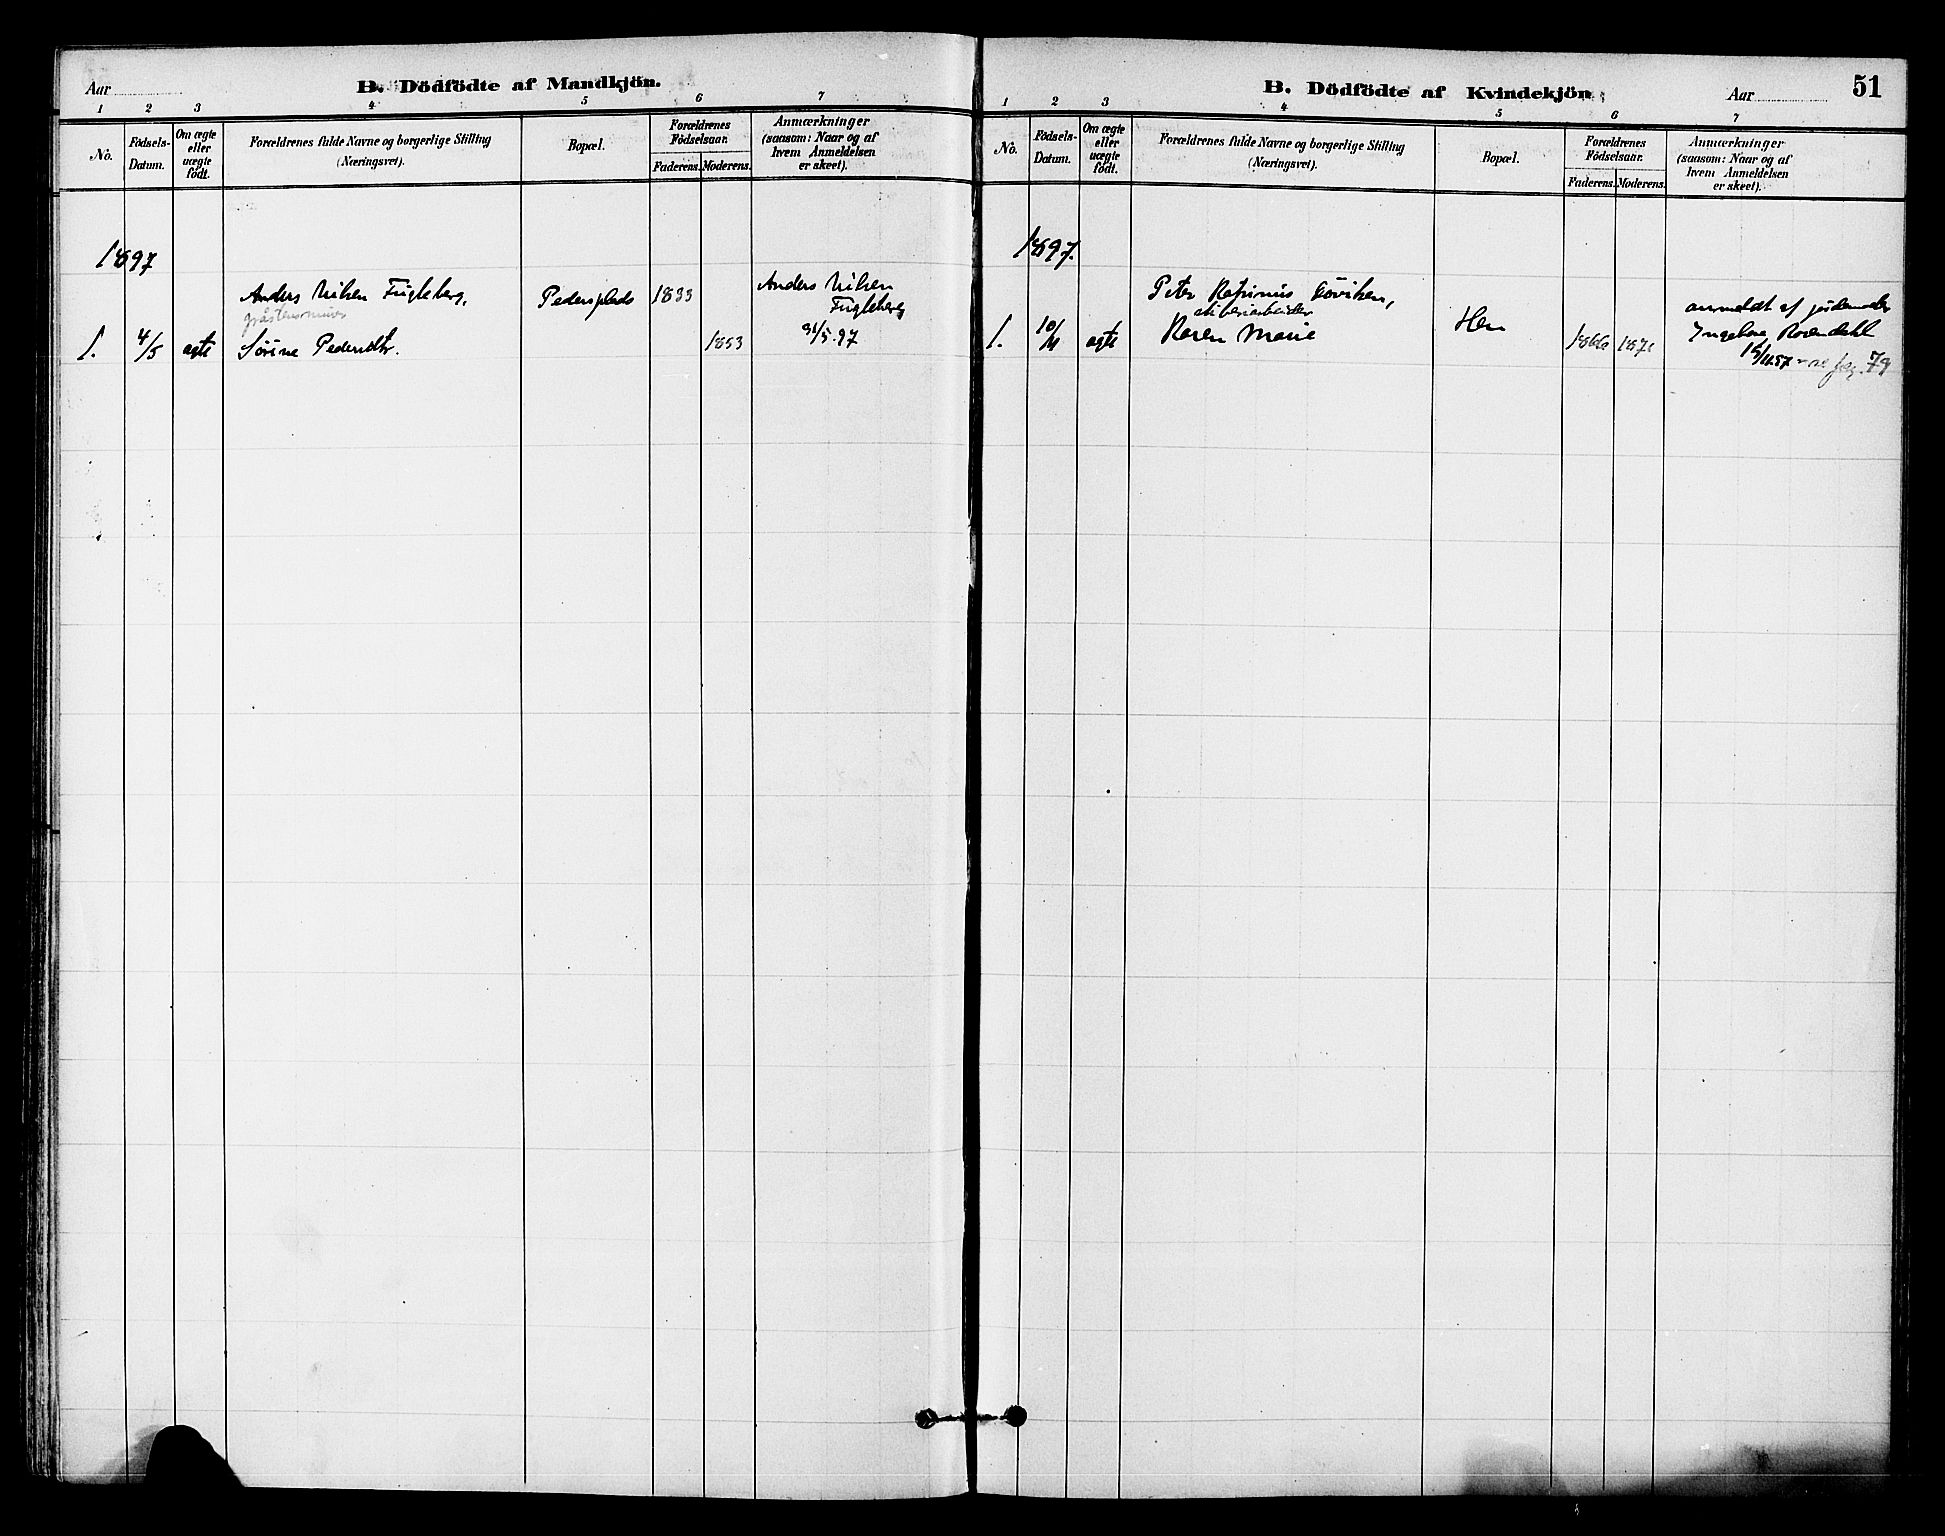 Aar
B. Dödfödte af Mandkjön.
1 2 3 4 5 6 7
No.
Födsels-
Datum.
Om ægte
eller
uægte
födt.
Forældrenes fulde Navne og borgerlige Stilling
(Næringsvei).
Bopæl.
Forældrenes
Födselsaar.
Faderens. Moderens.
Anmærkninger
(saasom: Naar og af
hvem Anmeldelsen
er skeet).
1897
Anders Nilsen Fugleberg,
gråstensmurer
Pedersplads
1833
Anders Nilsen
Fugleberg
1. 4/5 ægte Sørine Pedersdtr. 1853 31/5.97
B. Dödfödte af Kvindekjön
Aar
51
1 2 3 4 5 6 7
No.
Födsels-
Datum.
Om ægte
eller
uægte
födt.
Forældrenes fulde Navne og borgerlige Stilling
(Næringsvei).
Bopæl.
Forældrenes
Födselsaar.
Faderens. Moderens.
Anmærkninger
(saasom: Naar og af
hvem Anmeldelsen
er skeet).
1897.
Peter
sliberiarbeider
1. 10/4 ægte Karen Marie
Hen
anmeldt af jordemoder
Rosendahl
79